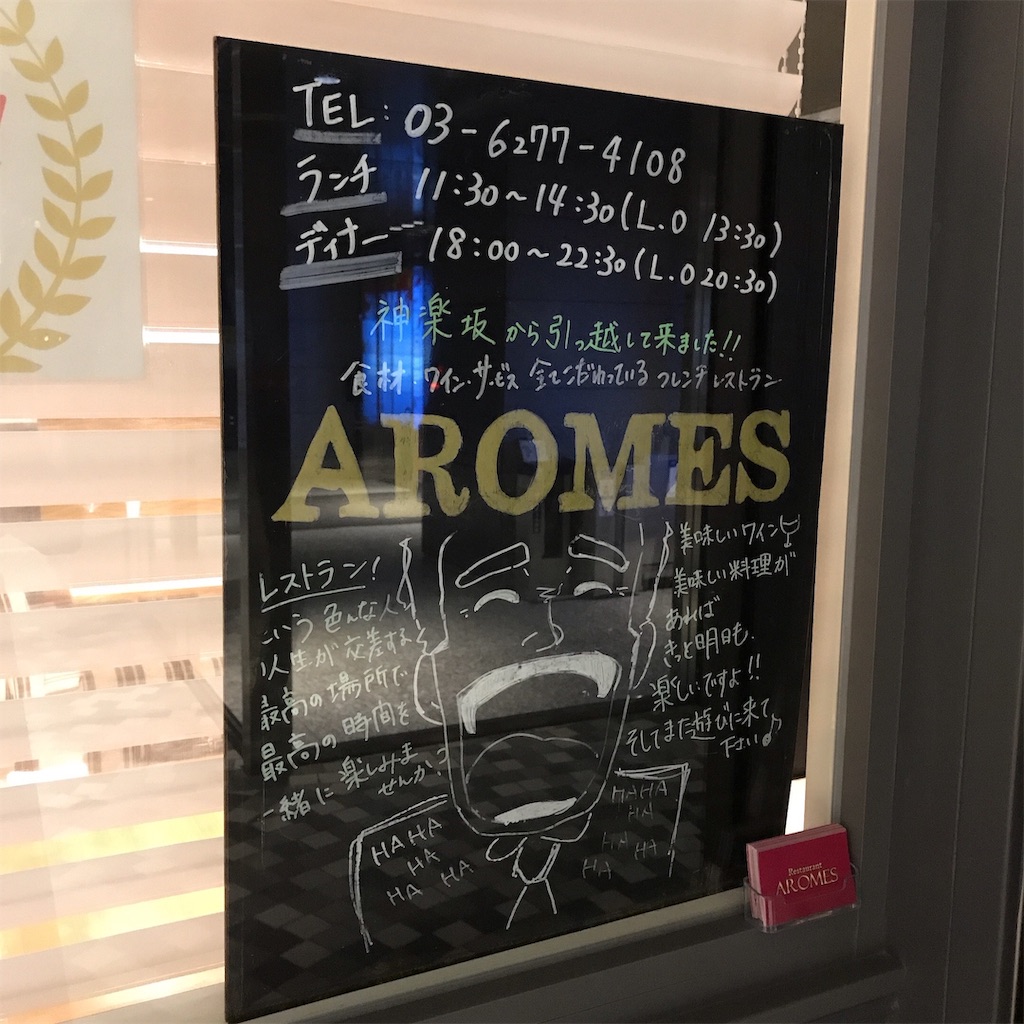 TEL: 03-6277-4108
ランチ 11:30~14:30(L.O 13:30)
ディナー 18:00~22:30(L.O 20:30)
神楽坂から引っ越して来ました!!
食材・ワイン・サービス 全てこだわっている フレンチレストラン
AROMES
レストラン!
こいう色んな人
人生が交差する
最高の場所で
最高の時間を
一緒に楽しみま
せんか?
美味しいワイン
美味しい料理が
あれば
きっと明日も
楽しいですよ!!
そしてまた遊びに来て
下さい♪
HAHA
HA
HA HA
HAHA
HA
HA HA
HA
Restaurant
AROMES